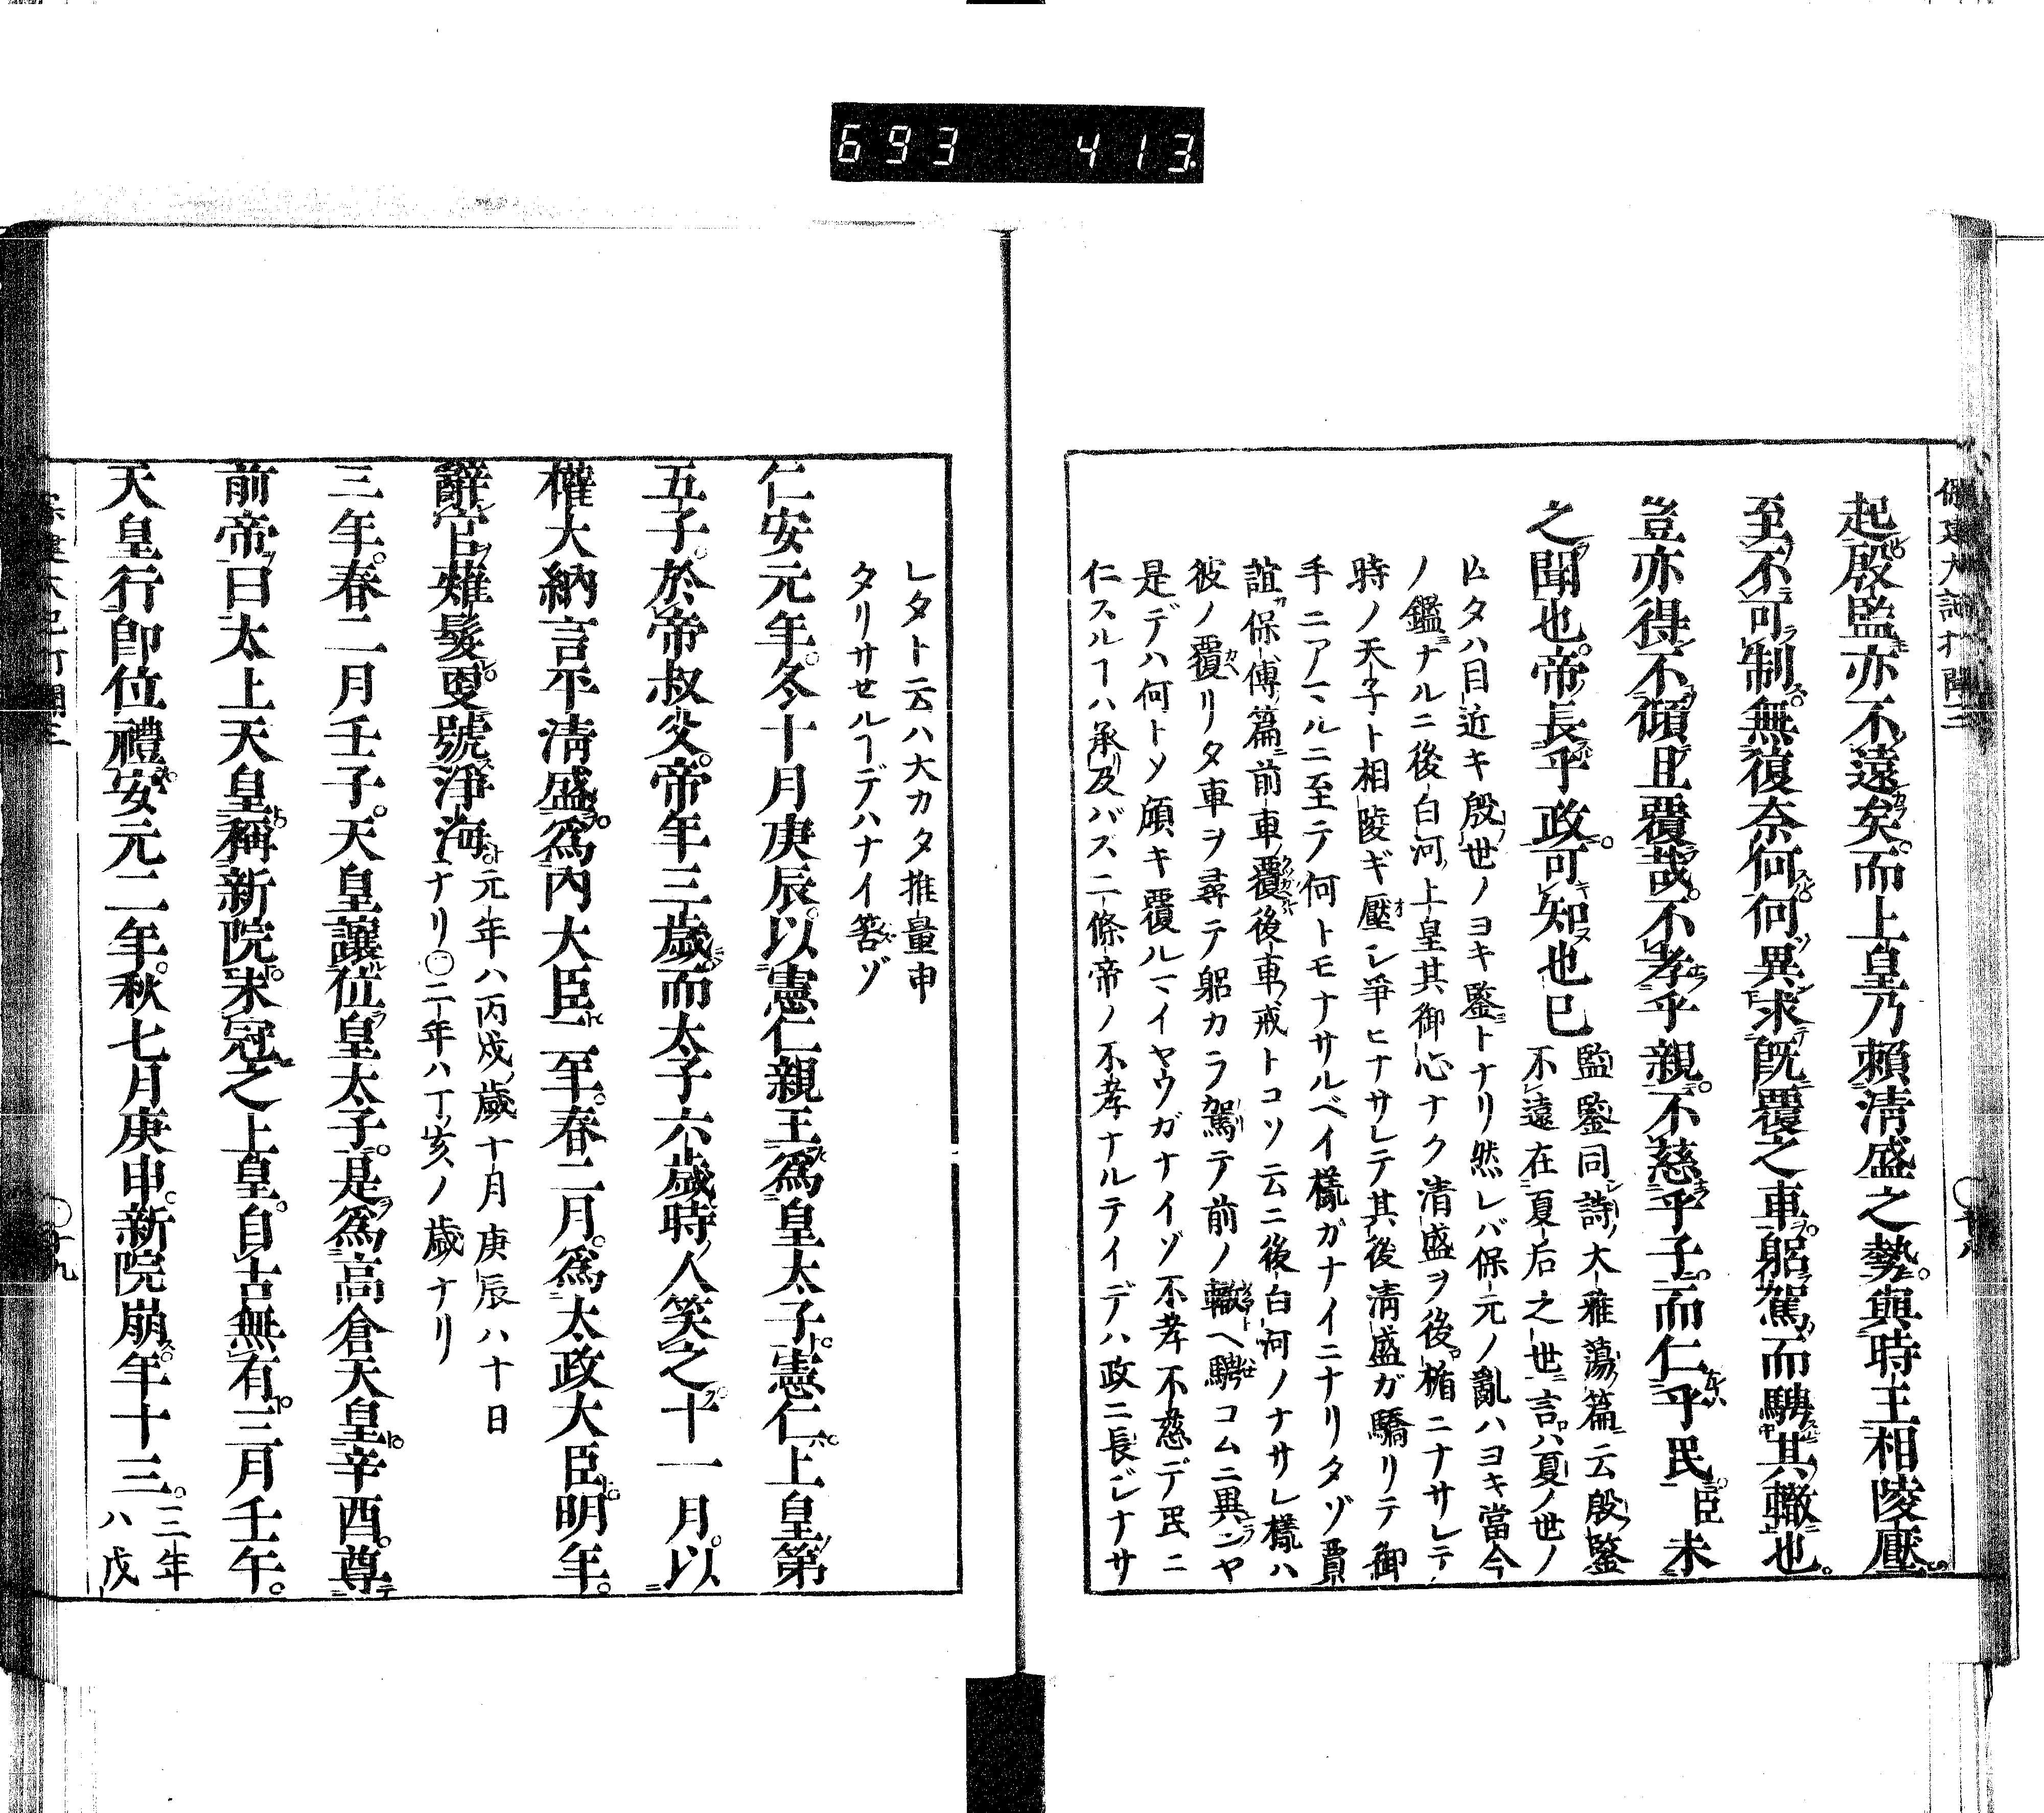 693 413
起殷監亦不遠矣。而上皇乃賴淸盛之勢。與時王相陵壓。
至不可制。無復奈何。何異求旣覆之車。躬駕而騁其轍也。
豈亦得不傾且覆哉。不孝乎親。不慈乎子。而仁乎民。臣未
之聞也。帝長乎政。可知也已
監鑒同詩大雅蕩篇云殷鑒
不遠在夏后之世言ハ夏ノ世ノ
亡タハ目近キ殷世ノヨキ鑒トナリ然レバ保元ノ亂ハヨキ當今
ノ鑑ナルニ後白河上皇其御心ナク清盛ヲ後楯ニナサレテ
時ノ天子ト相陵ギ壓シ爭ヒナサレテ其後淸盛ガ驕リテ御
手ニアマルニ至テ何トモナサルベイ樣ガナイニナリタゾ賈
誼保傅篇前車覆後車戒トコソ云ニ後白河ノナサレ樣ハ
彼ノ覆リタ車ヲ尋テ躬カラ駕テ前ノ轍ヘ騁コムニ異ンヤ
是デハ何トソ傾キ覆ルマイヤウガナイゾ不孝不慈デ民ニ
仁スルヿハ承及バス二條帝ノ不孝ナルテイデハ政ニ長ジナサ
レタト云ハ大カタ推量申
タリサセルヿデハナイ筈ゾ
仁安元年。冬十月庚辰。以憲仁親王爲皇太子。憲仁上皇第
五子。於帝叔父。帝年三歲。而太子六歲。時人笑之。十一月。以
權大納言平淸盛爲內大臣。二年。春二月。爲太政大臣。明年。
辭官薙髮。更號淨海。
元年ハ丙戌歲十月庚辰ハ十日
ナリ〇二年ハ丁亥ノ歲ナリ
三年。春二月壬子。天皇讓位皇太子。是爲高倉天皇。辛酉。尊
前帝曰太上天皇。稱新院。未冠之上皇。自古無有。三月壬午。
天皇行卽位禮。安元二年。秋七月庚申。新院崩。年十三。
三年
ハ戊